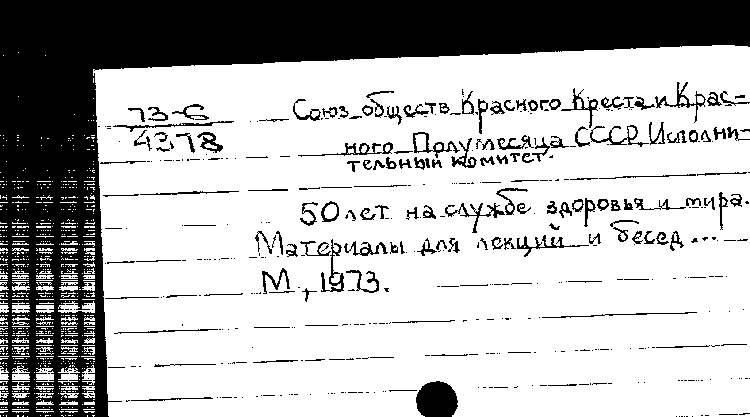 73-6
4378
Союз обществ Красного Креста и Крас-
ного Полумесяца СССР. Исполни-
тельный комитет.
50 лет на службе здоровья и мира.
Материалы для лекций и бесед...
М, 1973.